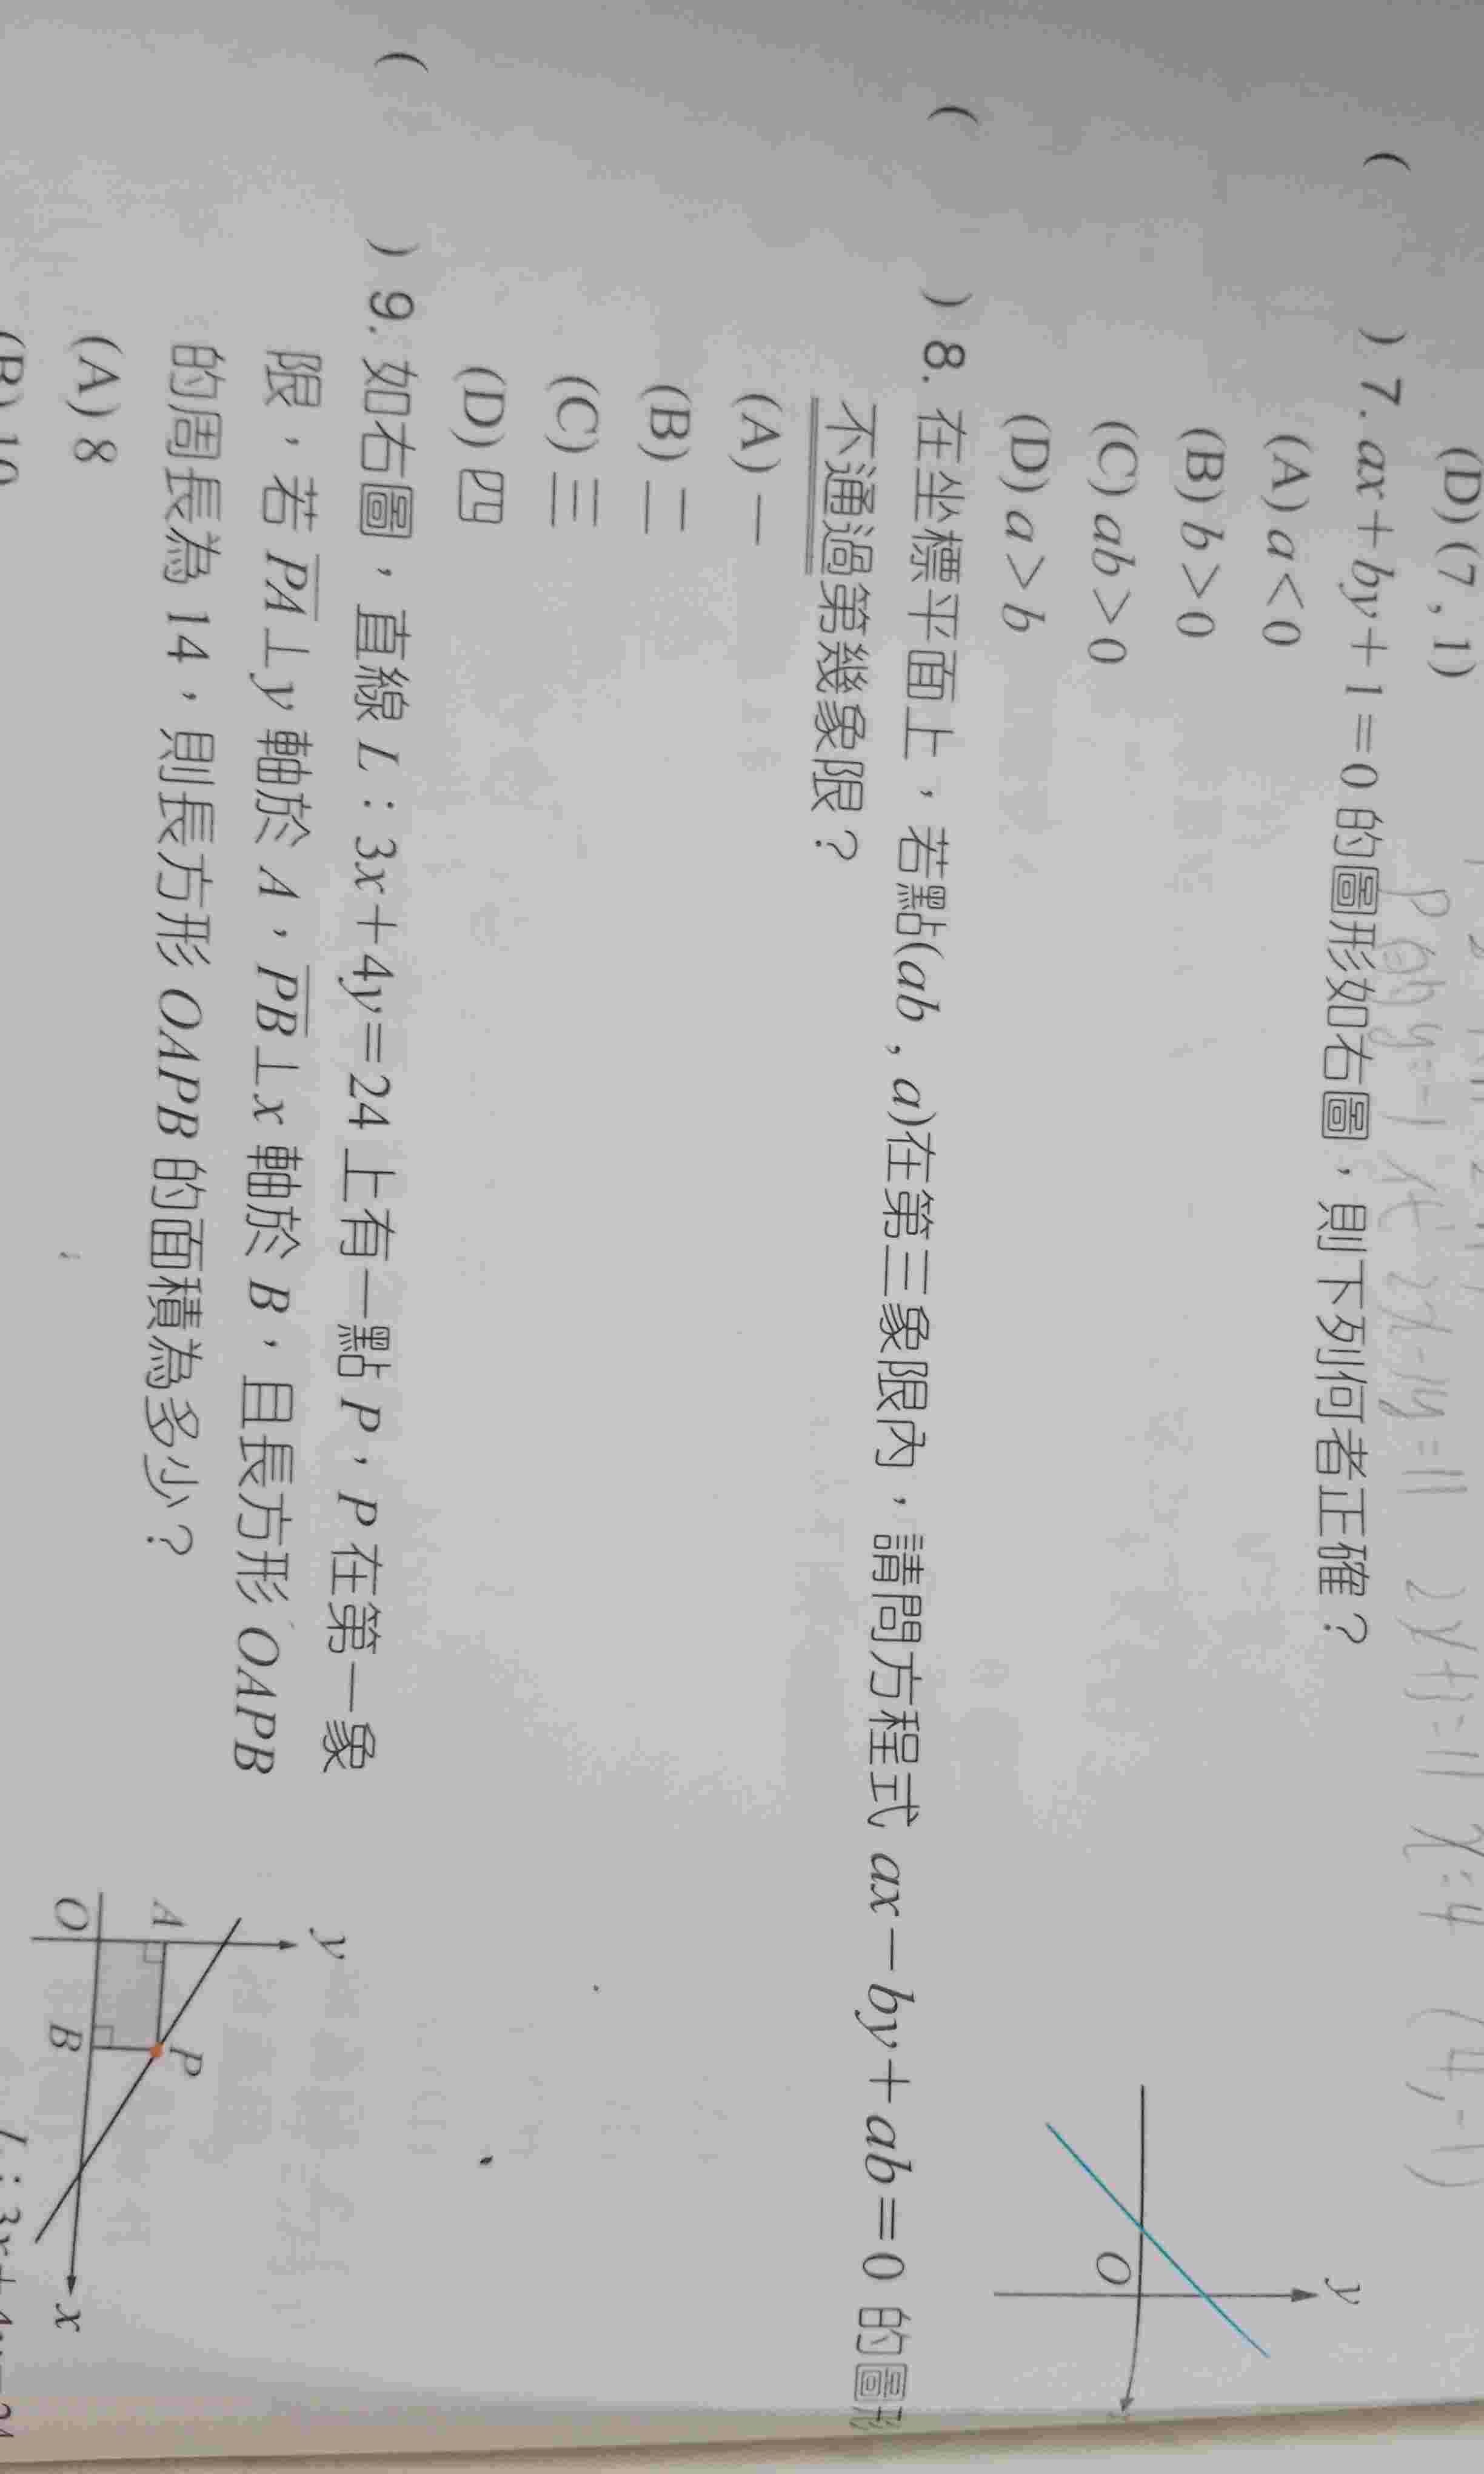 (D) (7 , 1)
P的y=-1 代 2x+y=11 (4,-1)
( ) 7. ax＋by＋1＝0 的圖形如右圖，則下列何者正確？
(A) a＜0
(B) b＞0
(C) ab＞0
(D) a＞b
y
O
( ) 8. 在坐標平面上，若點(ab , a)在第三象限內，請問方程式 ax－by＋ab＝0 的圖形
不通過第幾象限？
(A) 一
(B) 二
(C) 三
(D) 四
( ) 9. 如右圖，直線 L：3x＋4y＝24 上有一點 P，P 在第一象
限，若 PA⊥y 軸於 A，PB⊥x 軸於 B，且長方形 OAPB
的周長為 14，則長方形 OAPB 的面積為多少？
(A) 8
(B) 10
y
A
P
O
B
x